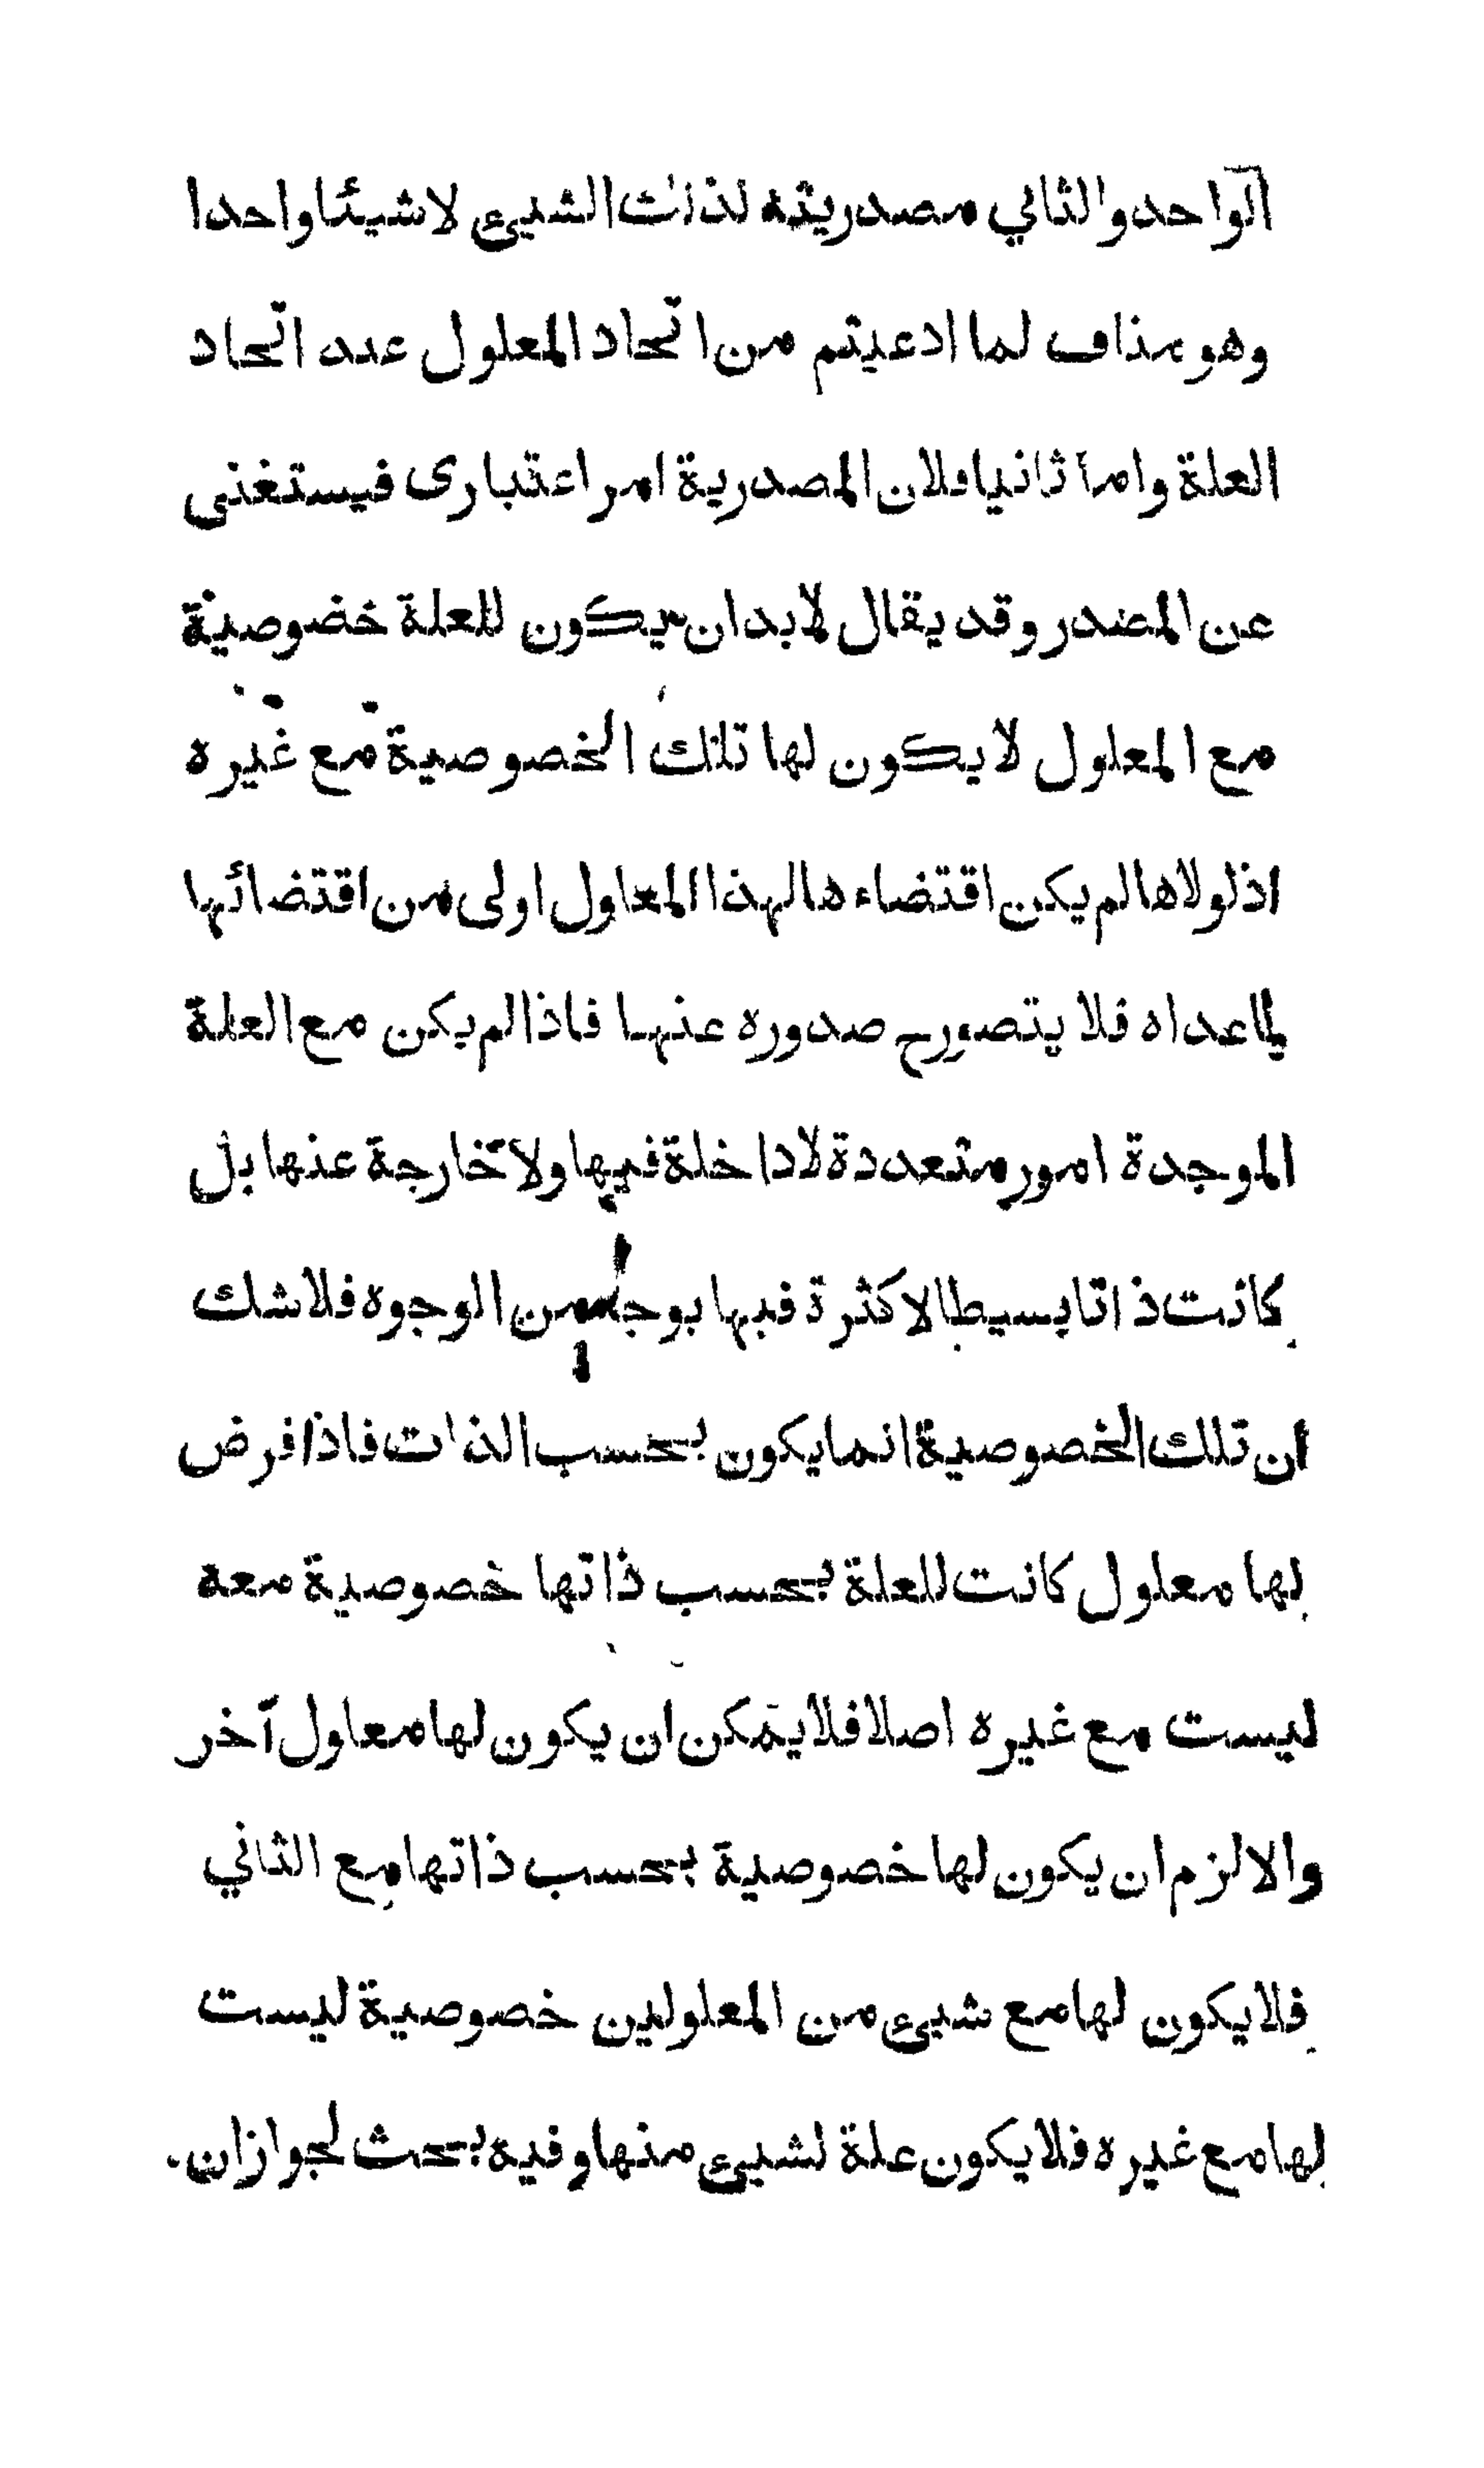 الواحد والثاني مصدريته لذات الشيئ لاشيئا واحدا
وهو مناف لما ادعيتم من اتحاد المعلول عند اتحاد
العلة واما ثانيا فلان المصدرية امر اعتبارى فيستغنى
عن المصدر وقد يقال لابد ان يكون للعلة خصوصية
مع المعلول لا يكون لها تلك الخصوصية مع غيره
اذ لولاها لم يكن اقتضاءها لهذا المعلول اولى من اقتضائها
لما عداه فلا يتصور ح صدوره عنها فاذا لم يكن مع العلة
الموجدة امور متعددة لا داخلة فيها ولا خارجة عنها بل
كانت ذاتا بسيطا لا كثرة فيها بوجه من الوجوه فلا شك
ان تلك الخصوصية انما يكون بحسب الذات فاذا فرض
لها معلول كانت للعلة بحسب ذاتها خصوصية معه
ليست مع غيره اصلا فلا يمكن ان يكون لها معلول آخر
والا لزم ان يكون لها خصوصية بحسب ذاتها مع الثاني
فلا يكون لها مع شيئ من المعلولين خصوصية ليست
لها مع غيره فلا يكون علة لشيئ منها وفيه بحث لجواز ان